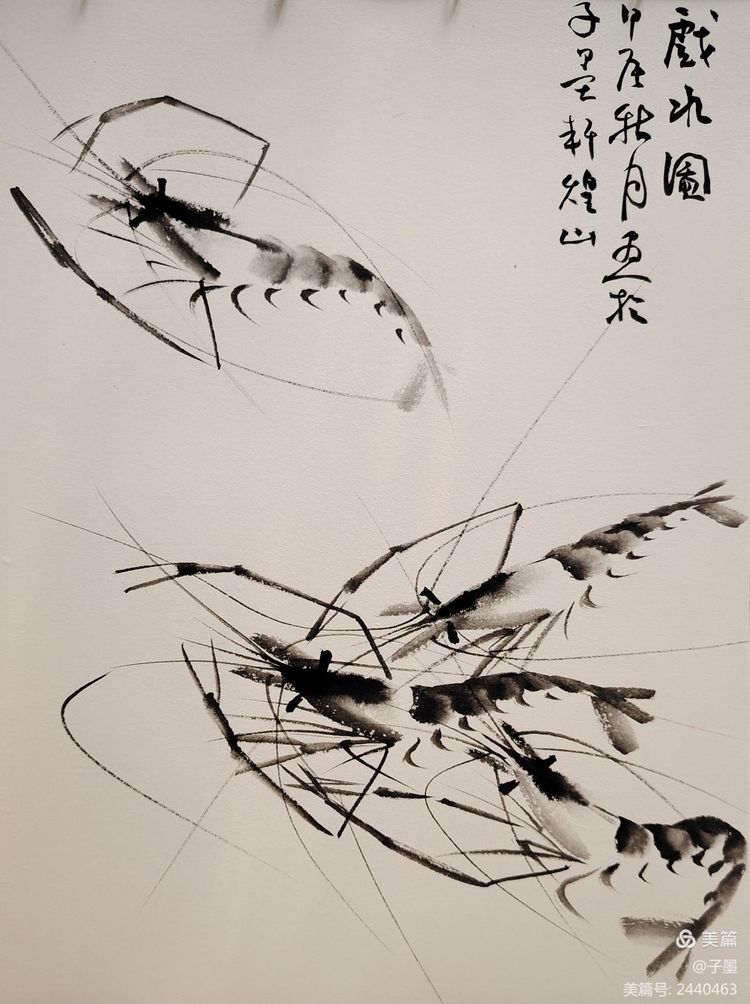 戲水圖
甲辰秋月画於
子墨軒煌山
美篇
@子墨
美篇号: 2440463